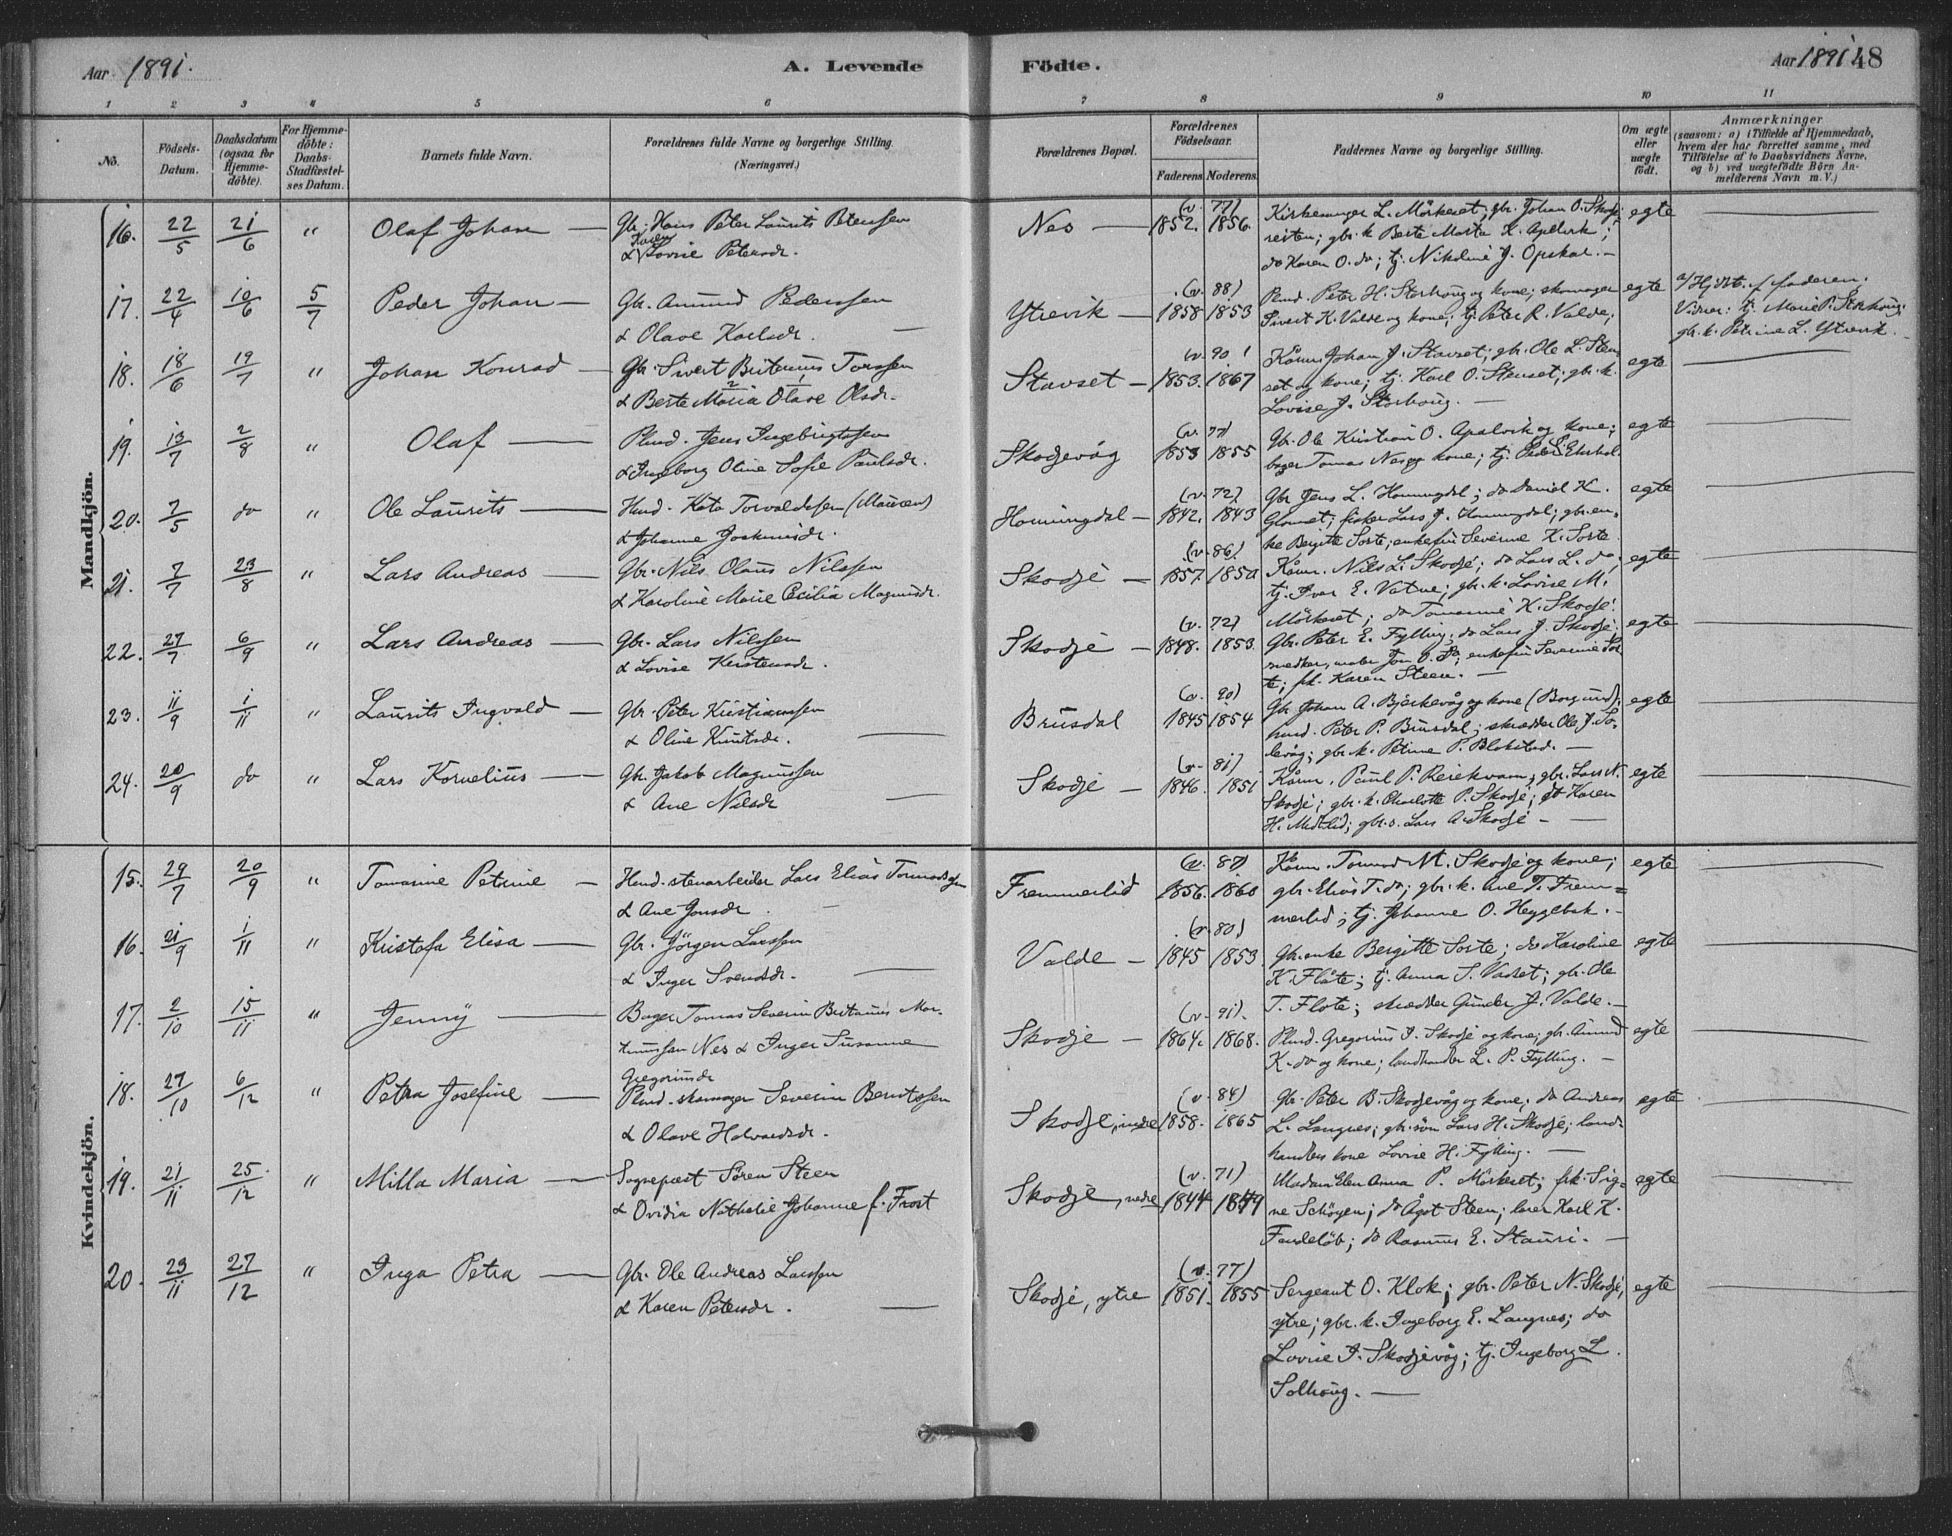 Aar 1891. A. Levende Födte. Aar 1891 48
1 2 3 4 5 6 7 8 9 10 11
No. Födsels-Datum. Daabsdatum (ogsaa for Hjemme-døbte). For Hjemme-döbte: Daabs-Stadfæstel-ses Datum. Barnets fulde Navn. Forældrenes fulde Navne og borgerlige Stilling. (Næringsvei.) Forældrenes Bopæl. Forældrenes Födselsaar. Faderens Moderens. Faddernes Navne og borgerlige Stilling. Om ægte eller uægte födt. Anmærkninger
(saasom: a) i Tilfælde af Hjemmedaab,
hvem der har forrettet samme, med
Tilföielse af to Daabsvidners Navne,
og b) ved uægtefödte Börn An-
melderens Navn m. V.)
Mandkjön.
16. 22/5 21/6 " Olaf Johan — Gbr. Hans Peter Laurits Petersen
& Karen Lovise Petersdr.
Nes — (v. 77)
1852. 1856.
Kirkesanger L. Mörkeset; gbr. Johan O. Skodje-
reiten; gbr. k. Berte Marta K. Apelvik;
do Karen O. do; tj. Nikoline J. Opskar. —
egte
17. 22/4 10/6 5/7 Peder Johan — Gbr. Amund Pederssen
& Olave Karlsdr. —
Ytrevik — (v. 88)
1858 1853
Plmd. Peter H. Storhoug og kone; skomager
Sivert K. Valde og kone; tj. Peter R. Valde;
egte
a/ Hjdbt. af faderen.
Vidner: tj. Marie P. Storhoug;
gbr. k. Petrine L. Ytrevik.
18. 18/6 19/7 " Johan Konrad — Gbr. Sivert Bertinius Torssen
& Berte Maria Olave Olsdr.
Stavset — (v. 90)
1853. 1867
Kårm. Johan J. Stavset; gbr. Ole L. Sten-
set og kone; tj. Karl O. Stenset; gbr. k.
Lovise J. Storhoug. —
egte
19. 13/7 2/8 " Olaf — Plmd. Jens Ingebrigtssen
& Ingeborg Oline Sofie Paulsdr.
Skodjevåg (v. 77)
1853 1855
Gbr. Ole Kristian O. Apalvik og kone;
bager Tomas Nes og kone; tj. Peder
egte
20. 7/5 do " Ole Laurits — Hmd. Kato Torvaldssen (Mauren)
& Johanne Joakimsdr.
Honningdal — (v. 72)
1842. 1843
Gbr. Jens L. Honningdal; do Daniel K.
Gromet; fisker Lars J. Honningdal; gbr. en-
ke Bergitte Sorte; enkefru Severine K. Sorte
egte
21. 7/7 23/8 " Lars Andreas — Gbr. Nils Olaus Nilssen
& Karoline Marie Cecilia Magnusdr.
Skodje — (v. 86)
1857. 1850
Kårm. Nils L. Skodje; do Lars L. do;
tj. Iver E. Vatne; gbr. k. Lovise M.
Mörkeset; do Tomasine K. Skodje.
egte
22. 27/7 6/9 " Lars Andreas — Gbr. Lars Nilssen
& Lovise Kristensdr.
Skodje — (v. 72)
1848. 1853.
Gbr. Peter E. Fylling; do Lars J. Skodje;
snedker, maler Jon O. do; enkefru Severine Sor-
te; frk. Karen Steen. —
egte
23. 11/9 1/11 " Laurits Ingvald — Gbr. Peter Kristianssen
& Oline Knutsdr. —
Brusdal (v. 90)
1845 1854
Gbr. Johan A. Bjørkevåg og kone (Borgund);
hmd. Peter P. Brusdal; skrædder Ole J. So-
levåg; gbr. k. Petrine P. Blakstad. —
egte
24. 20/9 do " Lars Kornelius — Gbr. Jakob Magnussen
& Ane Nilsdr. —
Skodje — (v. 81)
1846. 1851
Kårm. Paul P. Reiekvam; gbr. Lars N.
Skodje; gbr. k. Charlotte P. Skodje; do Karen
H. Medlid; gbr. s. Lars A. Skodje — —
egte
Kvindekjön.
15. 29/7 20/9 " Tomasine Petrine — Hmd. stenarbeider Lars Elias Tormodssen
& Ane Jonsdr. —
Fremmerlid (v. 87)
1856. 1860
Kårm. Tormod M. Skodje og kone;
gbr. Elias T. do; gbr. k. Ane T. Frem-
merlid; tj. Johanne O. Heggebak. —
egte
16. 21/9 1/11 " Kristofa Elisa — Gbr. Jörgen Larssen
& Inger Svendsdr. —
Valde — (v. 80)
1845 1853
Gbr. enke Bergitte Sorte; do Karoline
K. Flåte; tj. Anna S. Vadset; gbr. Ole
T. Flote; skrædder Gunder J. Valde. —
egte
17. 2/10 15/11 " Jenny — Bager Tomas Severin Bertinus Mar-
tinussen Nes & Inger Susanne
Gregoriusdr
Skodje — (v. 91).
1864. 1868.
Plmd. Gregorius I. Skodje og kone; gbr. Amund
K. do og kone; landhandler L. P. Fylling. —
egte
18. 27/10 6/12 " Petra Josefine — Plmd. skomager Severin Berntssen
& Olave Halvardsdr.
Skodje, nedre (v. 84)
1858. 1865
Gbr. Peter B. Skodjevåg og kone; do Andreas
L. Langnes; gbr. søn Lars H. Skodje; land-
handlers kone Lovise H. Fylling. —
egte
19. 21/11 25/12 " Milla Maria — Sognepræst Sören Steen
& Ovidia Nathalie Johanne f. Frost
Skodje, nedre (v. 71)
1844 1849
Madam Elen Anna P. Mörkeset; frk. Sig-
ne Schöyen; do Ågot Steen; lærer Karl K.
Fandelöb; do Rasmus E. Stauri. —
egte
20. 23/11 27/12 " Inga Petra — Gbr. Ole Andreas Larssen
& Karen Petersdr. —
Skodje, ytre (v. 77)
1851. 1855
Sergeant O. Klok; gbr. Peter N. Skodje,
ytre; gbr. k. Ingeborg E. Langnes; do
Lovise I. Skodjevåg; tj. Ingeborg L.
Solhoug. —
egte